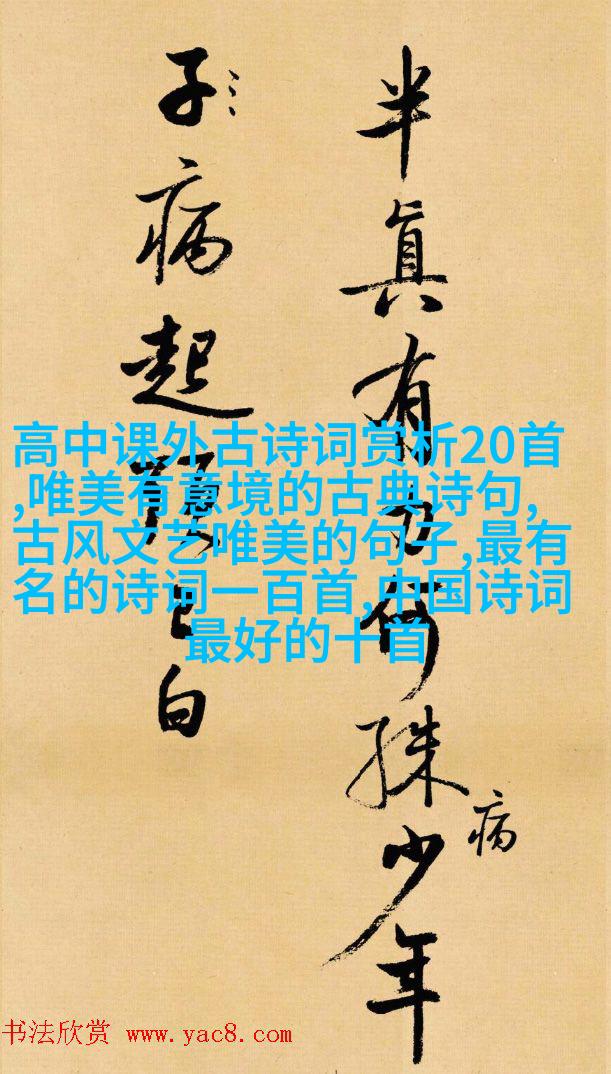 半眞有何殊少年
病
子病起白
高中课外古诗词赏析20首
,唯美有意境的古典诗句,
古风文艺唯美的句子,最有
名的诗词一百首,中国诗词
最好的十首
书法欣赏 www.yac8.com